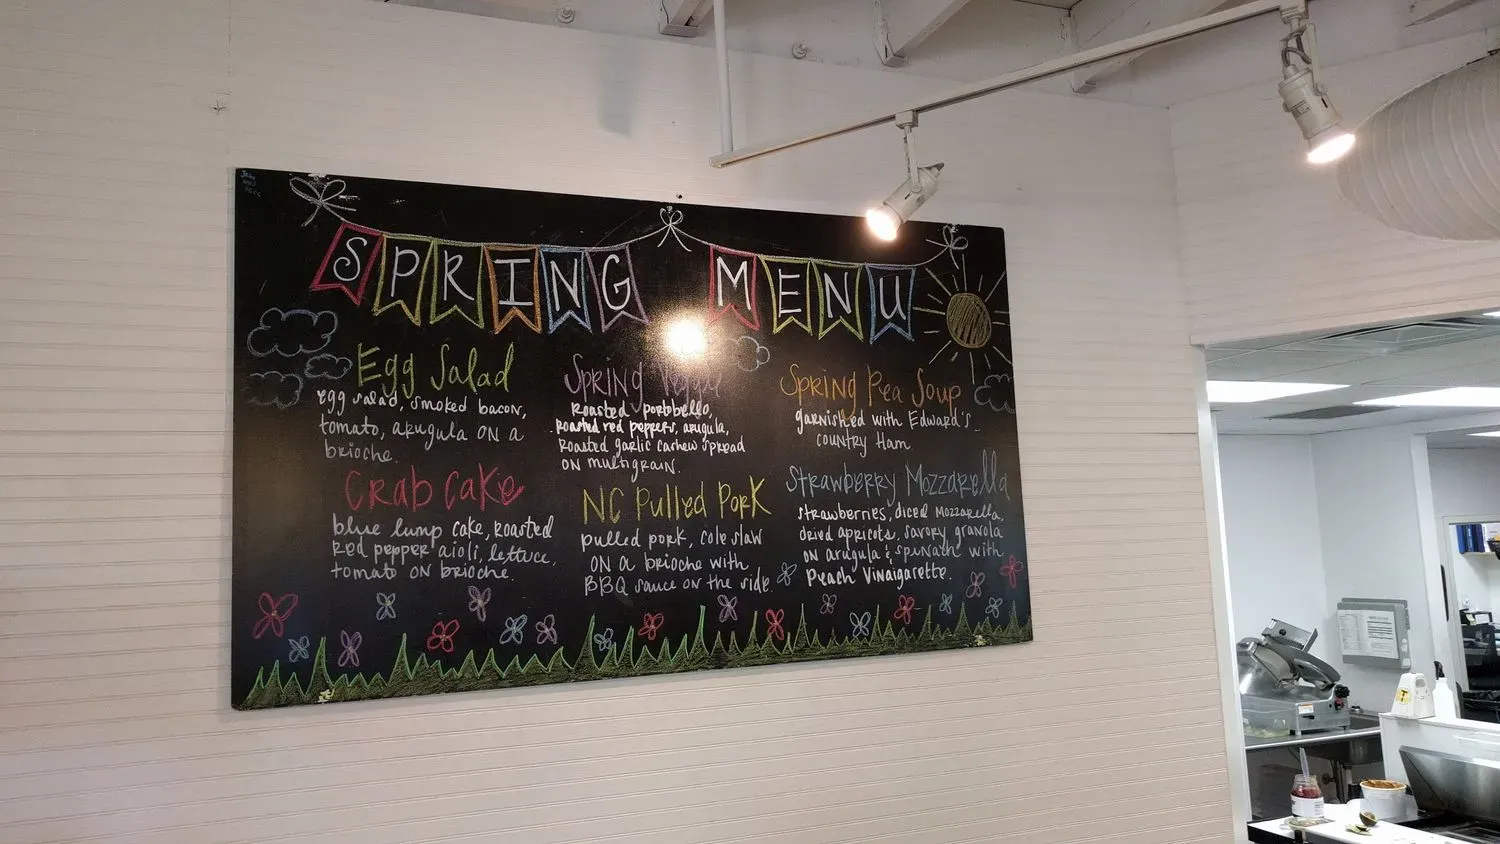 SPRING MENU
Egg Salad
egg salad, smoked bacon,
tomato, arugula on a
brioche.
Spring Veggie
Roasted portobello,
Roasted red peppers, arugula,
Roasted garlic cashew spread
on multigrain.
Spring Pea Soup
garnished with Edward's
country Ham
Crab Cake
blue lump cake, Roasted
Red pepper aioli, lettuce,
tomato on brioche.
NC Pulled Pork
pulled pork, cole slaw
on a brioche with
BBQ sauce on the side.
Strawberry Mozzarella
strawberries, diced mozzarella,
dried apricots, savory granola
on arugula & spinach with
Peach Vinaigarette.